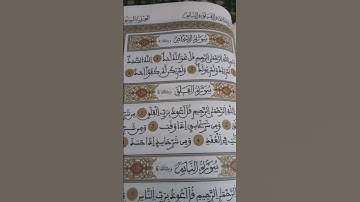 سُورَةُ الإِخْلَاصِ
اللَّهِ الرَّحْمَٰنِ الرَّحِيمِ قُلْ هُوَ اللَّهُ أَحَدٌ ١ اللَّهُ الصَّمَدُ
وَلَمْ يُولَدْ ٣ وَلَمْ يَكُن لَّهُ كُفُوًا أَحَدٌ
سُورَةُ الْفَلَقِ
اللَّهِ الرَّحْمَٰنِ الرَّحِيمِ قُلْ أَعُوذُ بِرَبِّ الْفَلَقِ ١ مِن شَرِّ
وَمِن شَرِّ غَاسِقٍ إِذَا وَقَبَ ٣ وَمِن شَرِّ
فِي الْعُقَدِ ٤ وَمِن شَرِّ حَاسِدٍ إِذَا حَسَدَ
سُورَةُ النَّاسِ
الرَّحْمَٰنِ الرَّحِيمِ قُلْ أَعُوذُ بِرَبِّ النَّاسِ ١